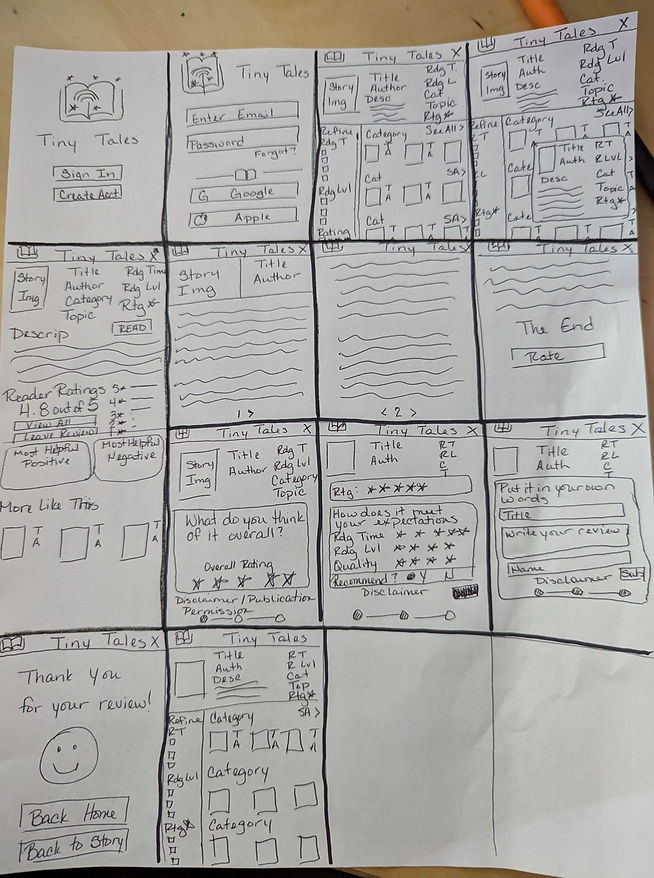 Tiny Tales
Sign In
Create Acct
Tiny Tales
Enter Email
Password
Forgot?
G Google
Apple
Tiny Tales X
Story
Img
Title
Author
Desc
Rdg T
Rdg L
Cat
Topic
Rtg*
Refine
Rdg T
Rdg Lvl
Rating
Category See All >
T
A
Cat SA >
Cat SA >
T
A
Tiny Tales X
Story
Img
Title
Auth
Desc
Rdg T
Rdg Lvl
Cat
Topic
Rtg*
See All >
Refine
RL
Rtg*
Category
T
Cate
Cate
Title
Auth
Desc
RT
RLvL
Cat
Topic
Rtg*
Tiny Tales X
Story
Img
Title
Author
Category
Topic
Rdg Time
Rdg Lvl
Rtg*
READ
Descrip
Reader Ratings
4.8 out of 5
5*
4*
3*
2*
1*
View All
Leave Review
Most Helpful
Positive
Most Helpful
Negative
More Like This
T
A
T
A
T
A
Tiny Tales X
Story
Img
Title
Author
1 >
Tiny Tales X
< 2 >
Tiny Tales X
The End
Rate
Tiny Tales X
Story
Img
Title
Author
Rdg T
Rdg Lvl
Category
Topic
What do you think
of it overall?
Overall Rating
Disclaimer / Publication
Permission
Tiny Tales X
Title
Auth
RT
RL
C
T
Rtg: *****
How does it meet
your expectations
Rdg Time
Rdg Lvl
Quality
Recommend? Y N
Disclaimer
Tiny Tales X
Title
Auth
RT
RL
C
T
Put it in your own
words
Title
Write your review
Name
Disclaimer Sub
Tiny Tales X
Thank You
for your review!
Back Home
Back to Story
Tiny Tales
Title
Auth
Desc
RT
R Lvl
Cat
Top
Rtg*
Refine
RT
Rdg Lvl
Rtg*
Category SA >
T
A
T
A
T
A
Category
Category